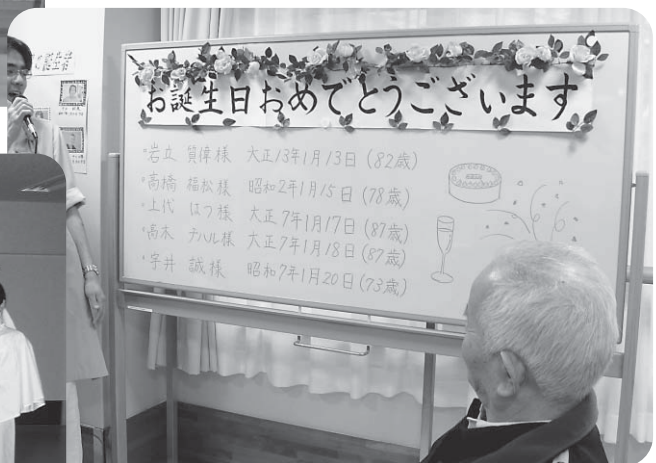 お誕生日おめでとうございます
・岩立 貿偉様 大正13年1月13日(82歳)
・高橋 福松様 昭和2年1月15日(78歳)
・土代 はつ様 大正7年1月17日(87歳)
・高木 テハル様 大正7年1月18日(87歳)
・宇井 誠様 昭和7年1月20日(73歳)